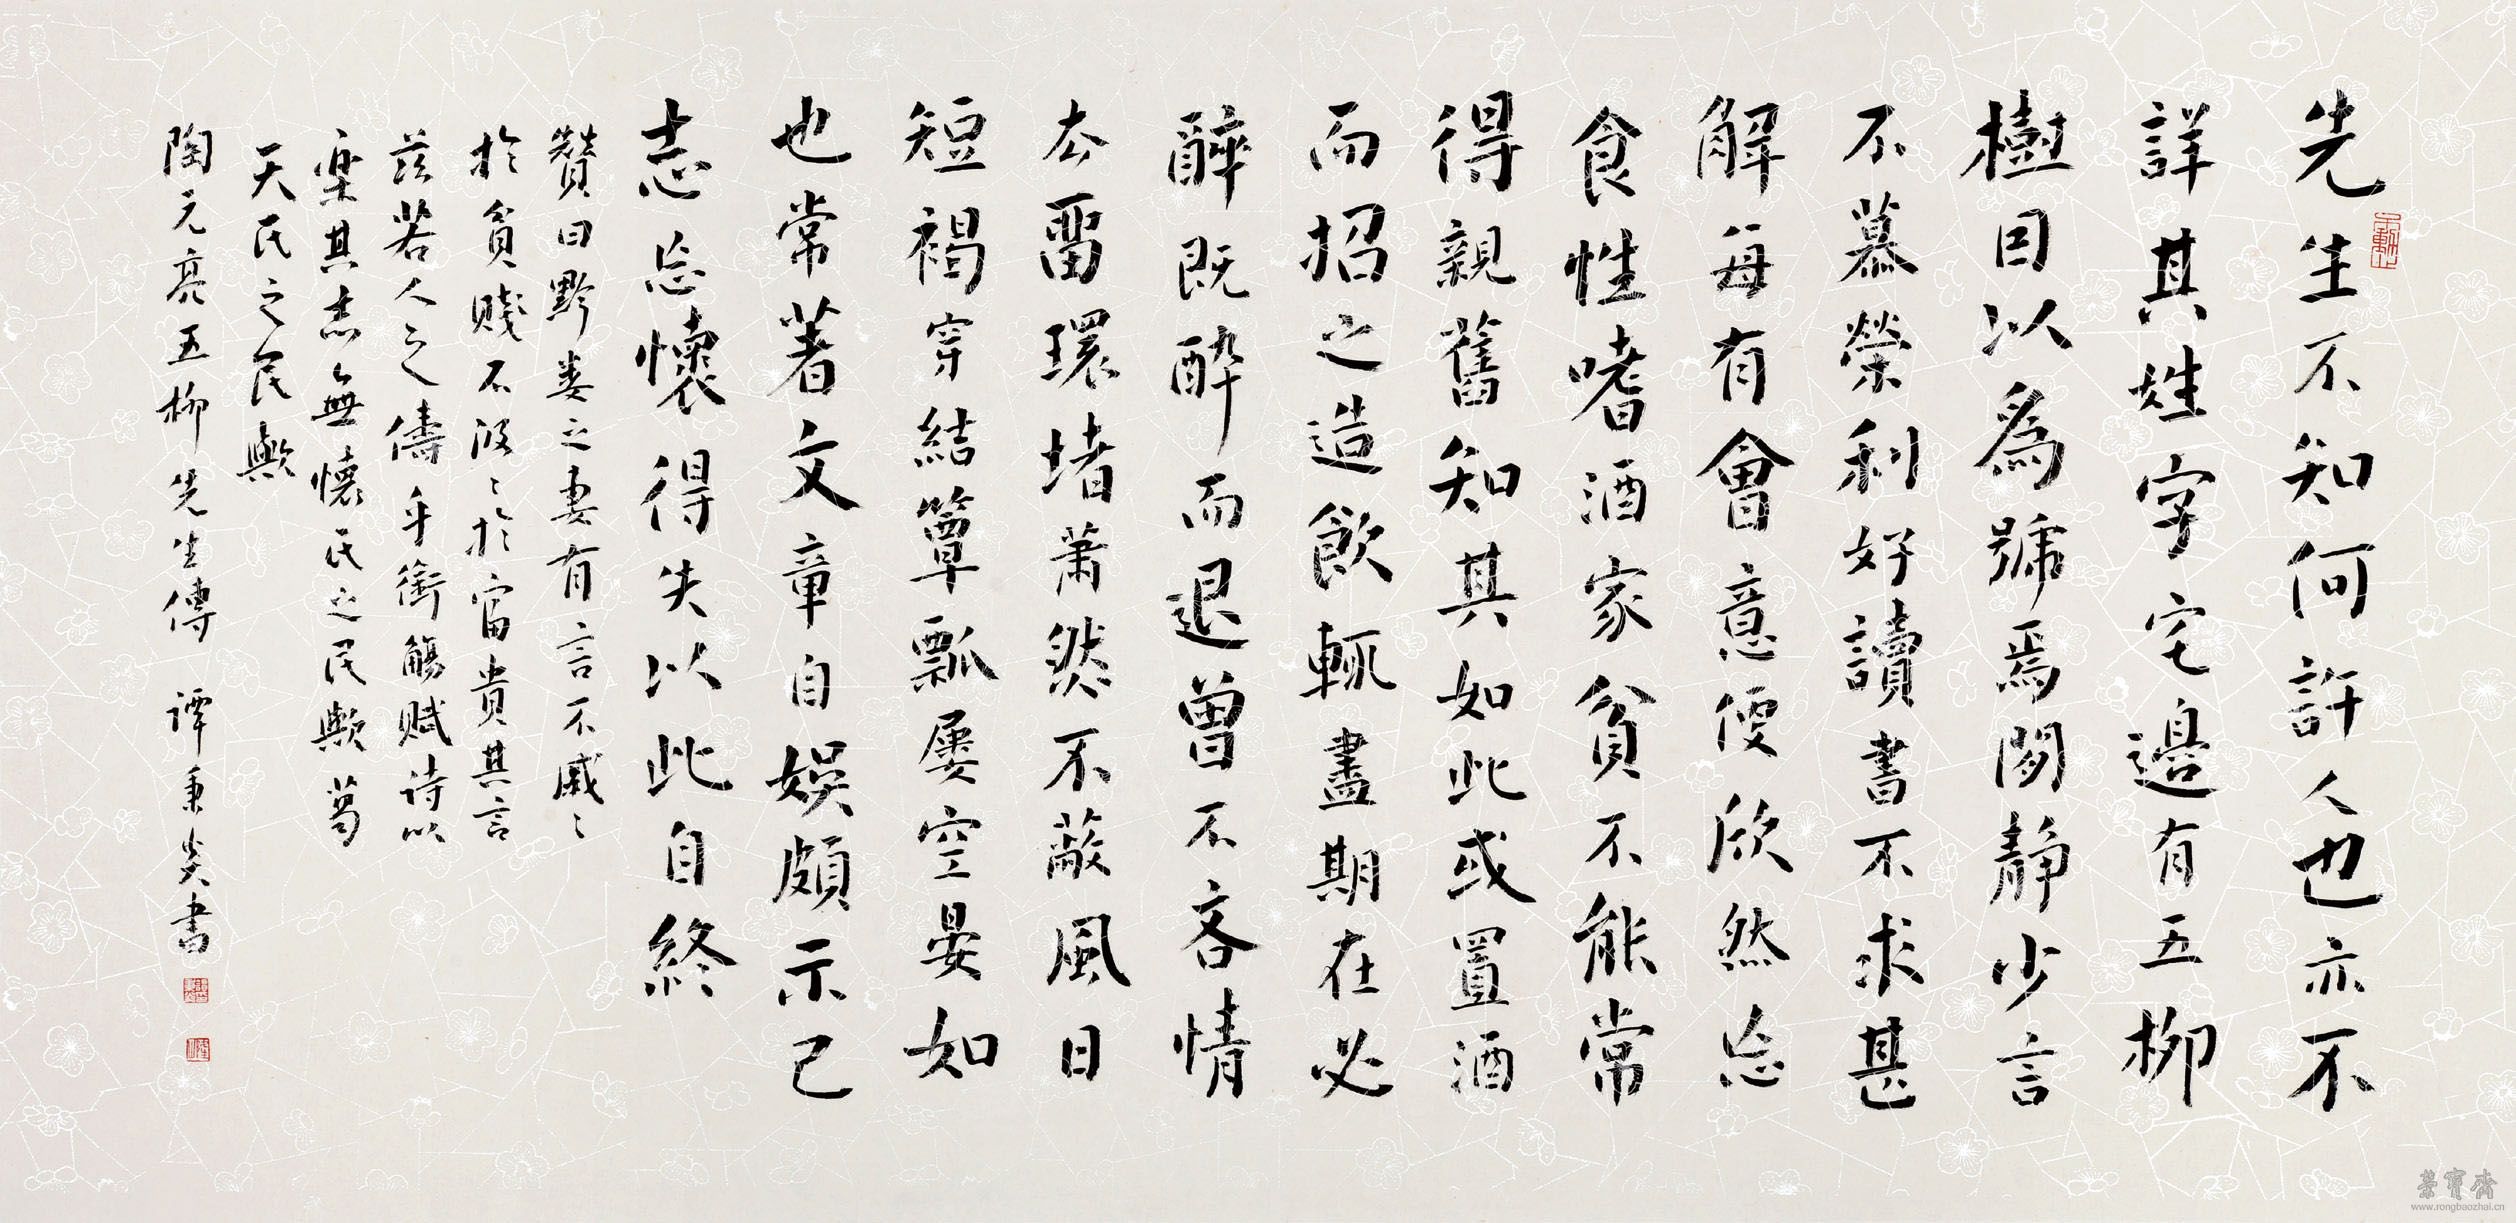 先生不知何許人也亦不
詳其姓字宅邊有五柳
樹囙以爲號焉閑靜少言
不慕榮利好讀書不求甚
解每有會意便欣然忘
食性嗜酒家貧不能常
得親舊知其如此或置酒
而招之造飲輒盡期在必
醉既醉而退曾不吝情
去留環堵蕭然不蔽風日
短褐穿結簞瓢屢空晏如
也常著文章自娛頗示己
志忘懷得失以此自終
贊曰黔婁之妻有言不戚〻
於貧賤不汲〻於富貴其言
茲若人之儔乎銜觴賦詩以
樂其志無懷氏之民歟葛
天氏之民歟
陶元亮五柳先生傳 譚秉炎書
榮寶齋
www.rongbaozhai.cn